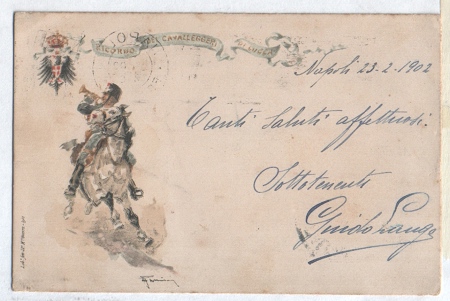 RICORDO DEI CAVALLEGGERI DI LUCCA
Napoli 23-2-1902
Tanti saluti affettuosi.
Sottotenente
Guido Lange